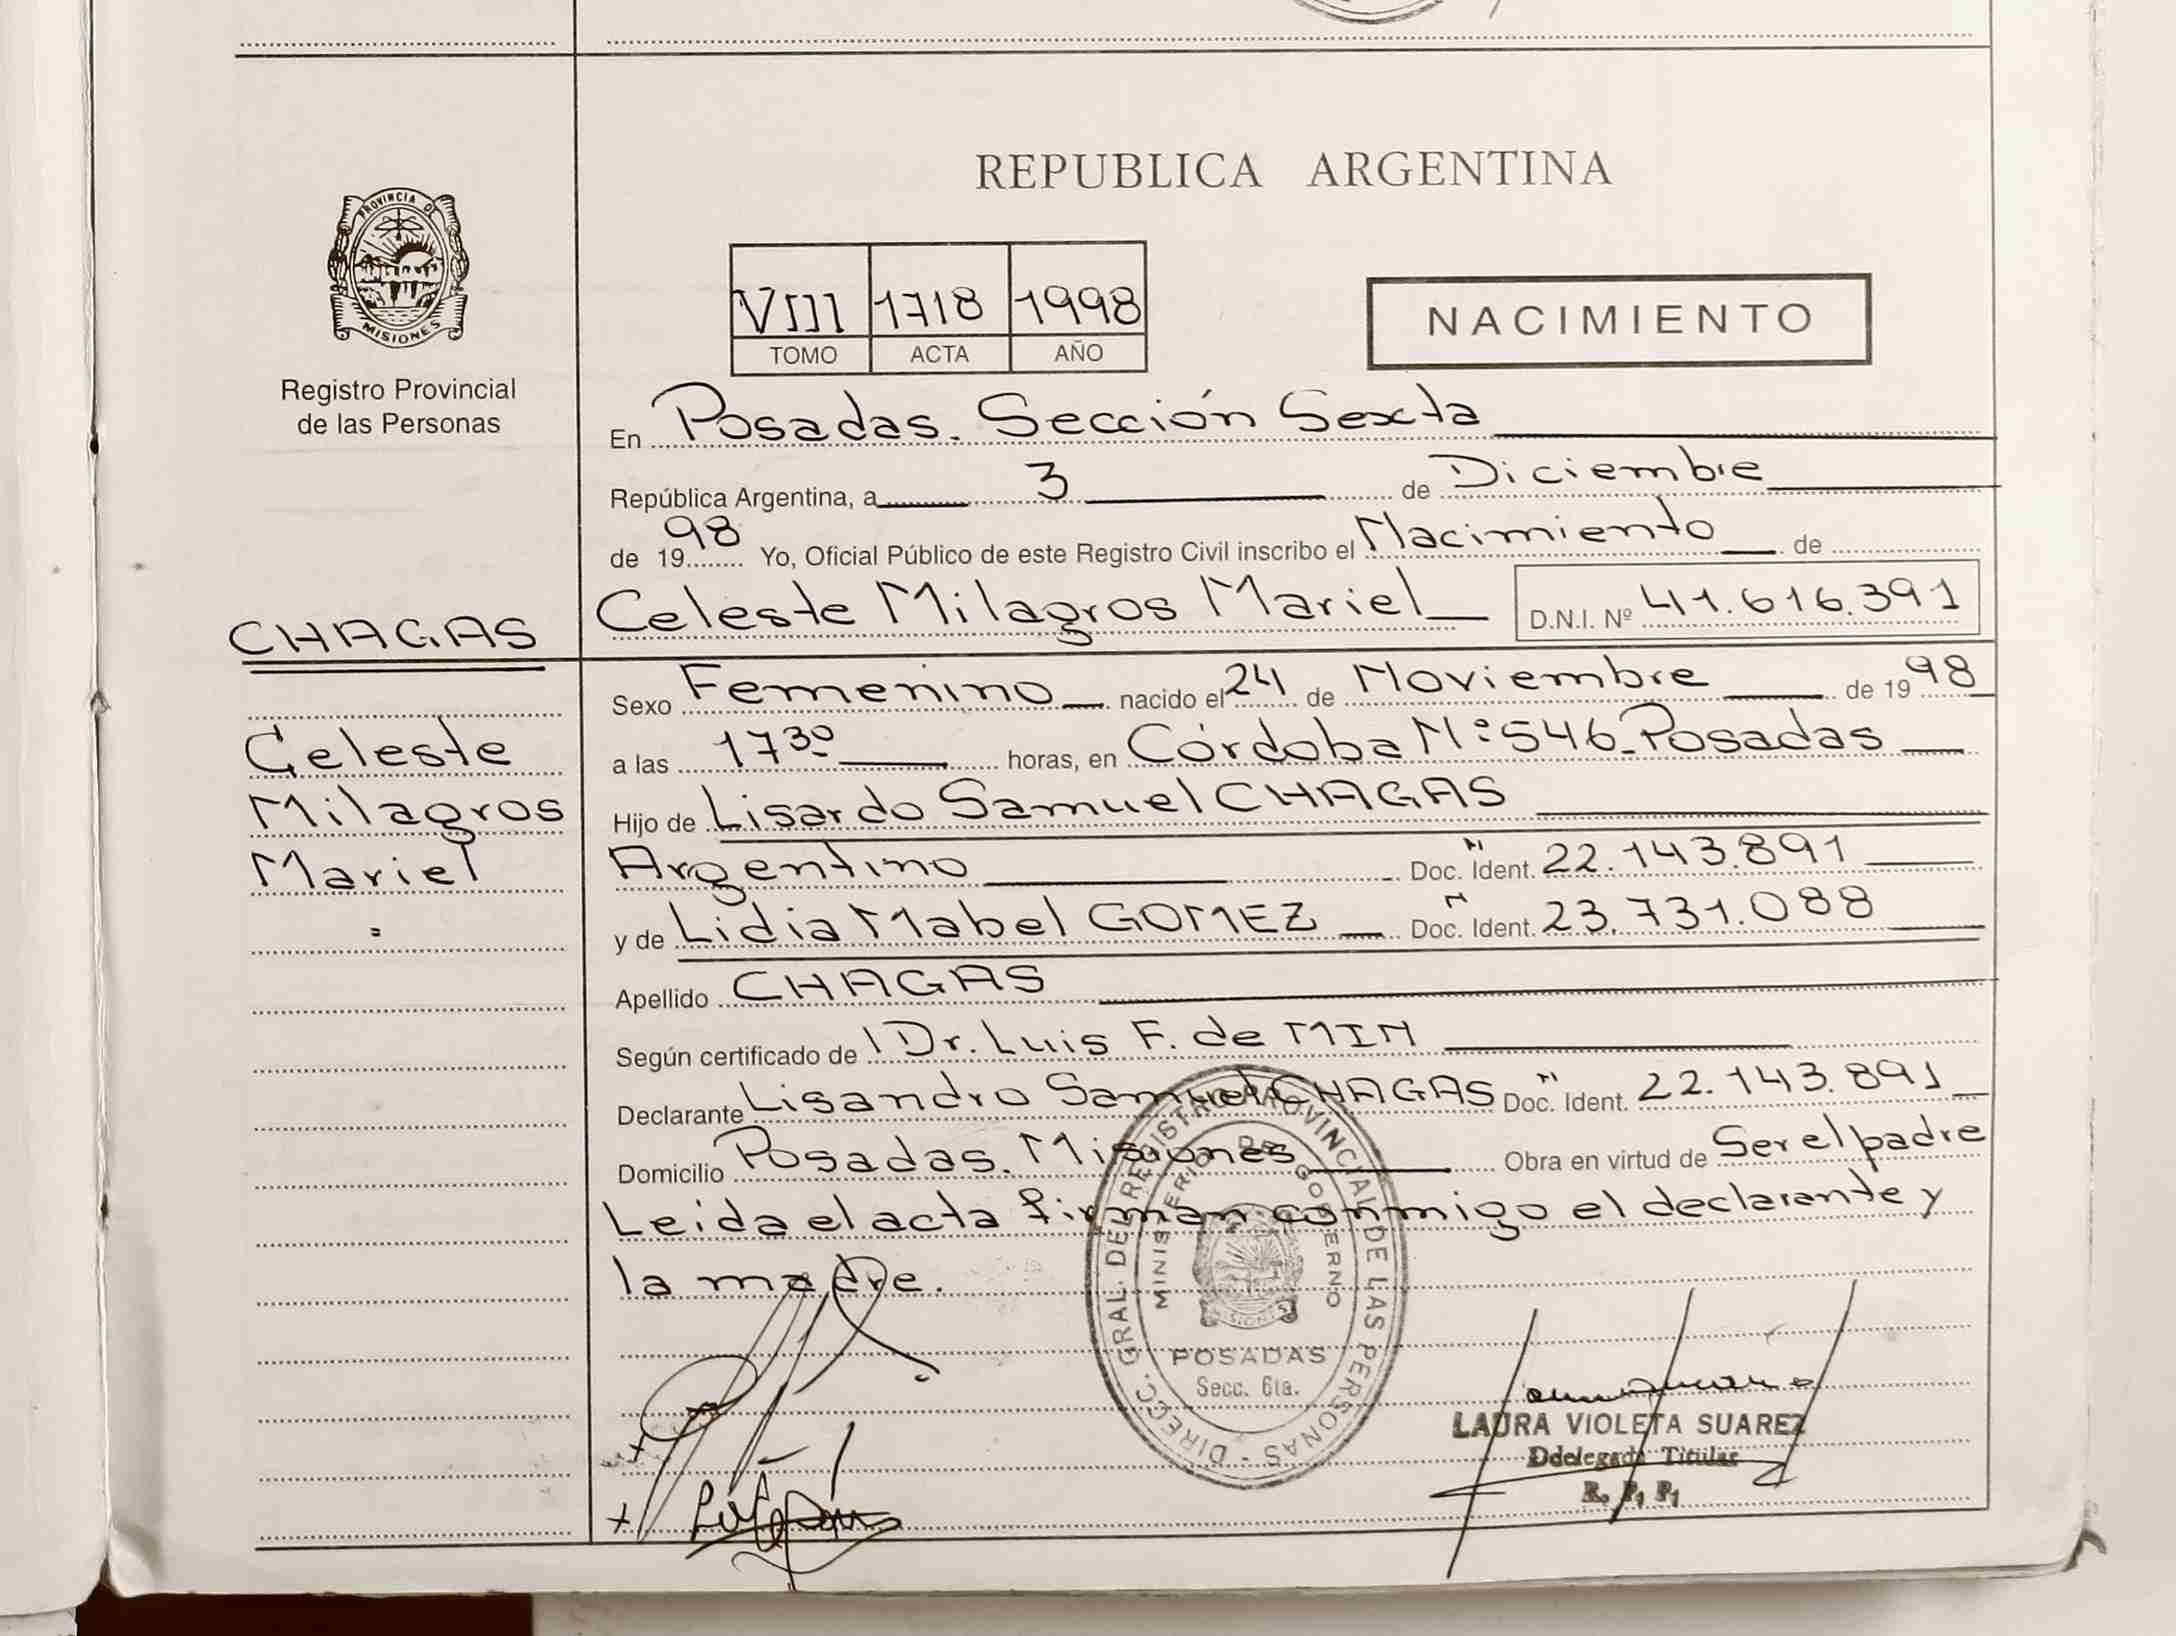 REPUBLICA ARGENTINA
PROVINCIA DE
MISIONES
Registro Provincial
de las Personas
VIII 1718 1998
TOMO ACTA AÑO
NACIMIENTO
En Posadas. Sección Sexta
República Argentina, a 3 de Diciembre
de 1998 Yo, Oficial Público de este Registro Civil inscribo el Nacimiento de
CHAGAS
Celeste Milagros Mariel D.N.I. Nº 41.616.391
Sexo Femenino nacido el 24 de Noviembre de 1998
Celeste
Milagros
Mariel
a las 17 30 horas, en Córdoba Nº 546 - Posadas
Hijo de Lisardo Samuel CHAGAS
Argentino Doc. Ident. 22.143.891
y de Lidia Mabel GOMEZ Doc. Ident. 23.731.088
Apellido CHAGAS
Según certificado de Dr. Luis F. de MIN
Declarante Lisandro Samuel CHAGAS Doc. Ident. 22.143.891
Domicilio Posadas. Misiones Obra en virtud de Ser el padre
Leida el acta firman conmigo el declarante y
la madre.
DIRECC. GRAL. DEL REGISTRO PROVINCIAL DE LAS PERSONAS -
MINISTERIO DE GOBIERNO
POSADAS
Secc. 6ta.
LAURA VIOLETA SUAREZ
Ddelegado Titular
R. P. P.